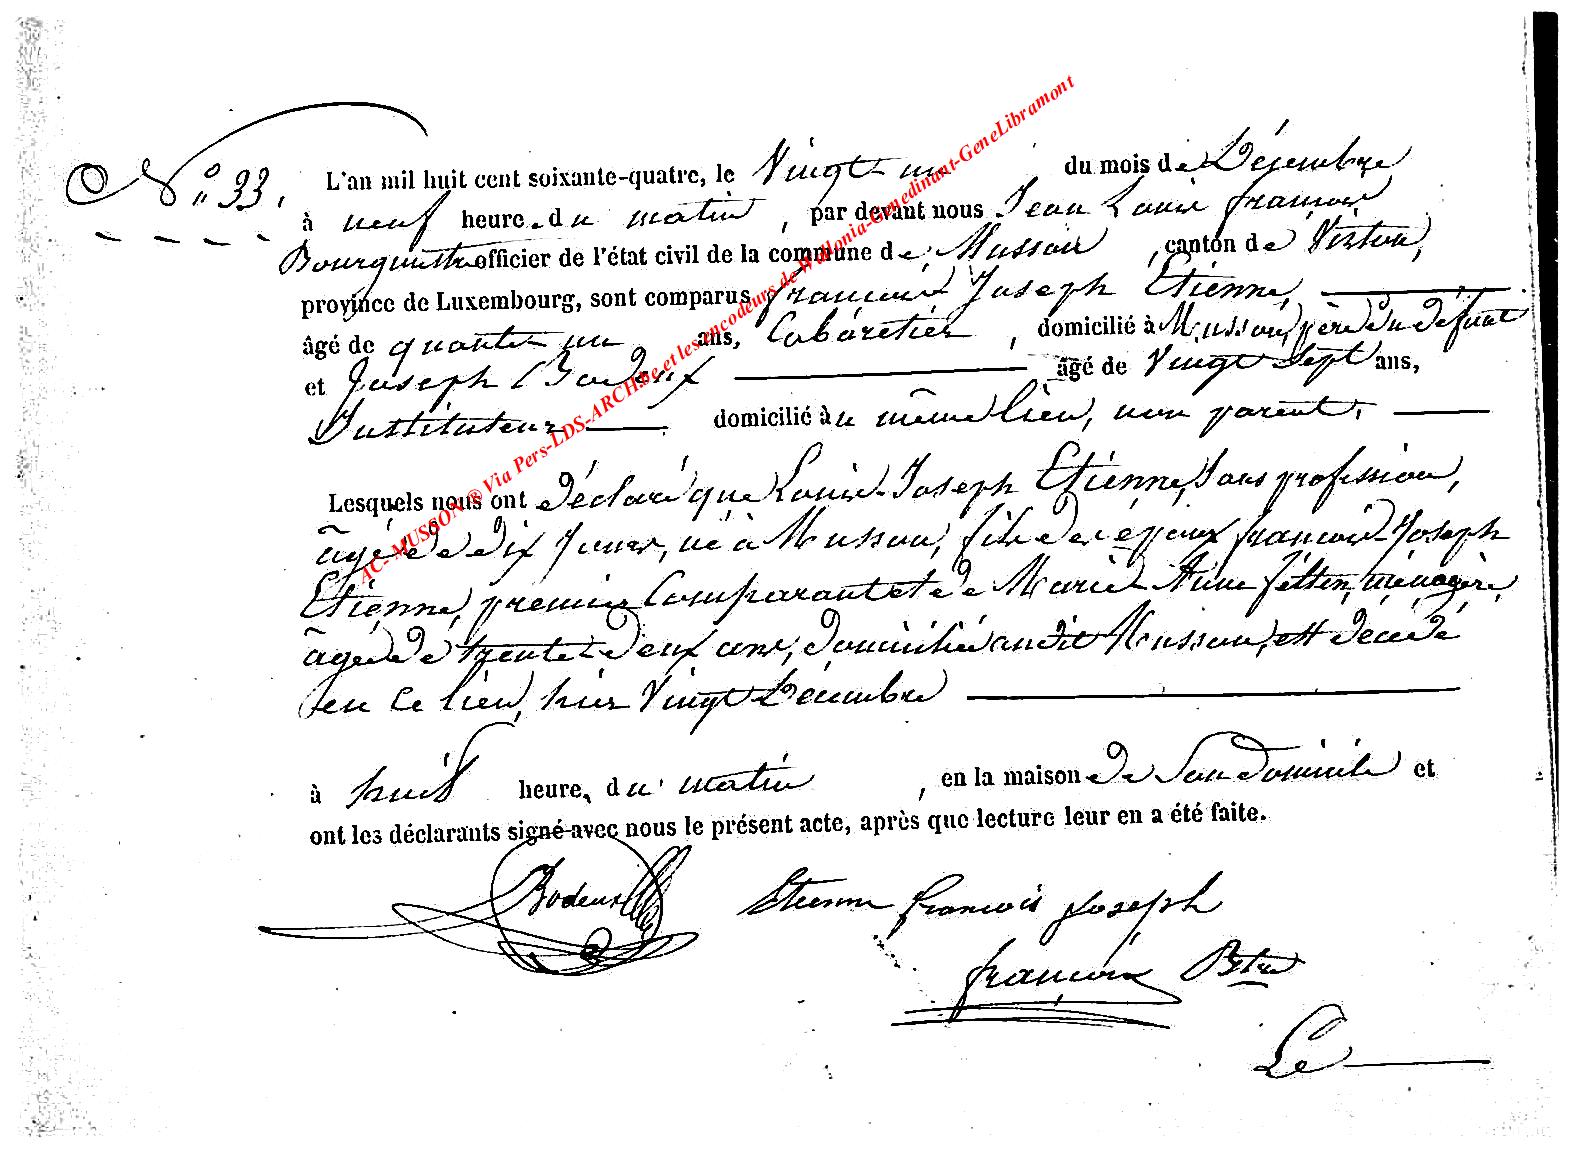 N° 33.
L'an mil huit cent soixante-quatre, le Vingt un du mois de Décembre
à neuf heure. du matin, par devant nous Jean Louis françois
officier de l'état civil de la commune de Musson, canton de Virton,
province de Luxembourg, sont comparus françois Joseph Etienne,
âgé de quarante un ans, Cabaretier, domicilié à Musson, père du défunt
et Joseph Bodeux âgé de Vingt Sept ans,
Instituteur domicilié au même lieu, non parent.
Lesquels nous ont déclaré que Louis-Joseph Etienne, Sans profession,
âgé de dix jours, né à Musson, fils des époux françois-Joseph
Etienne, premier Comparant et de Marie Anne ménagère,
âgée de trente deux ans, domiciliés audit Musson, est décédé
en ce lieu, hier Vingt Décembre
à huit heure, du matin, en la maison de Son domicile et
ont les déclarants signé avec nous le présent acte, après que lecture leur en a été faite.
Bodeux Etienne françois Joseph
françois
Le
AC-MUSSON® Via Pers-LDS-ARCH.be et les encodeurs de Wallonia-Genedinant-GeneLibramont